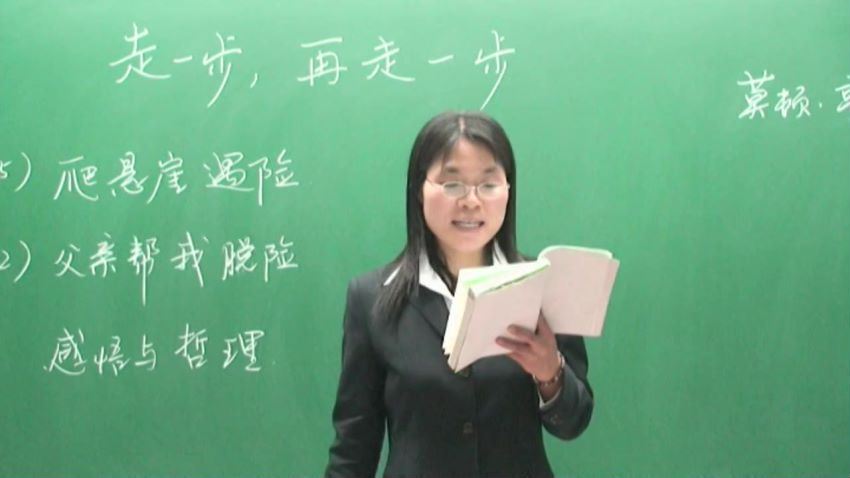 走一步，再走一步
莫顿·
5）爬悬崖遇险
2）父亲帮我脱险
感悟与哲理